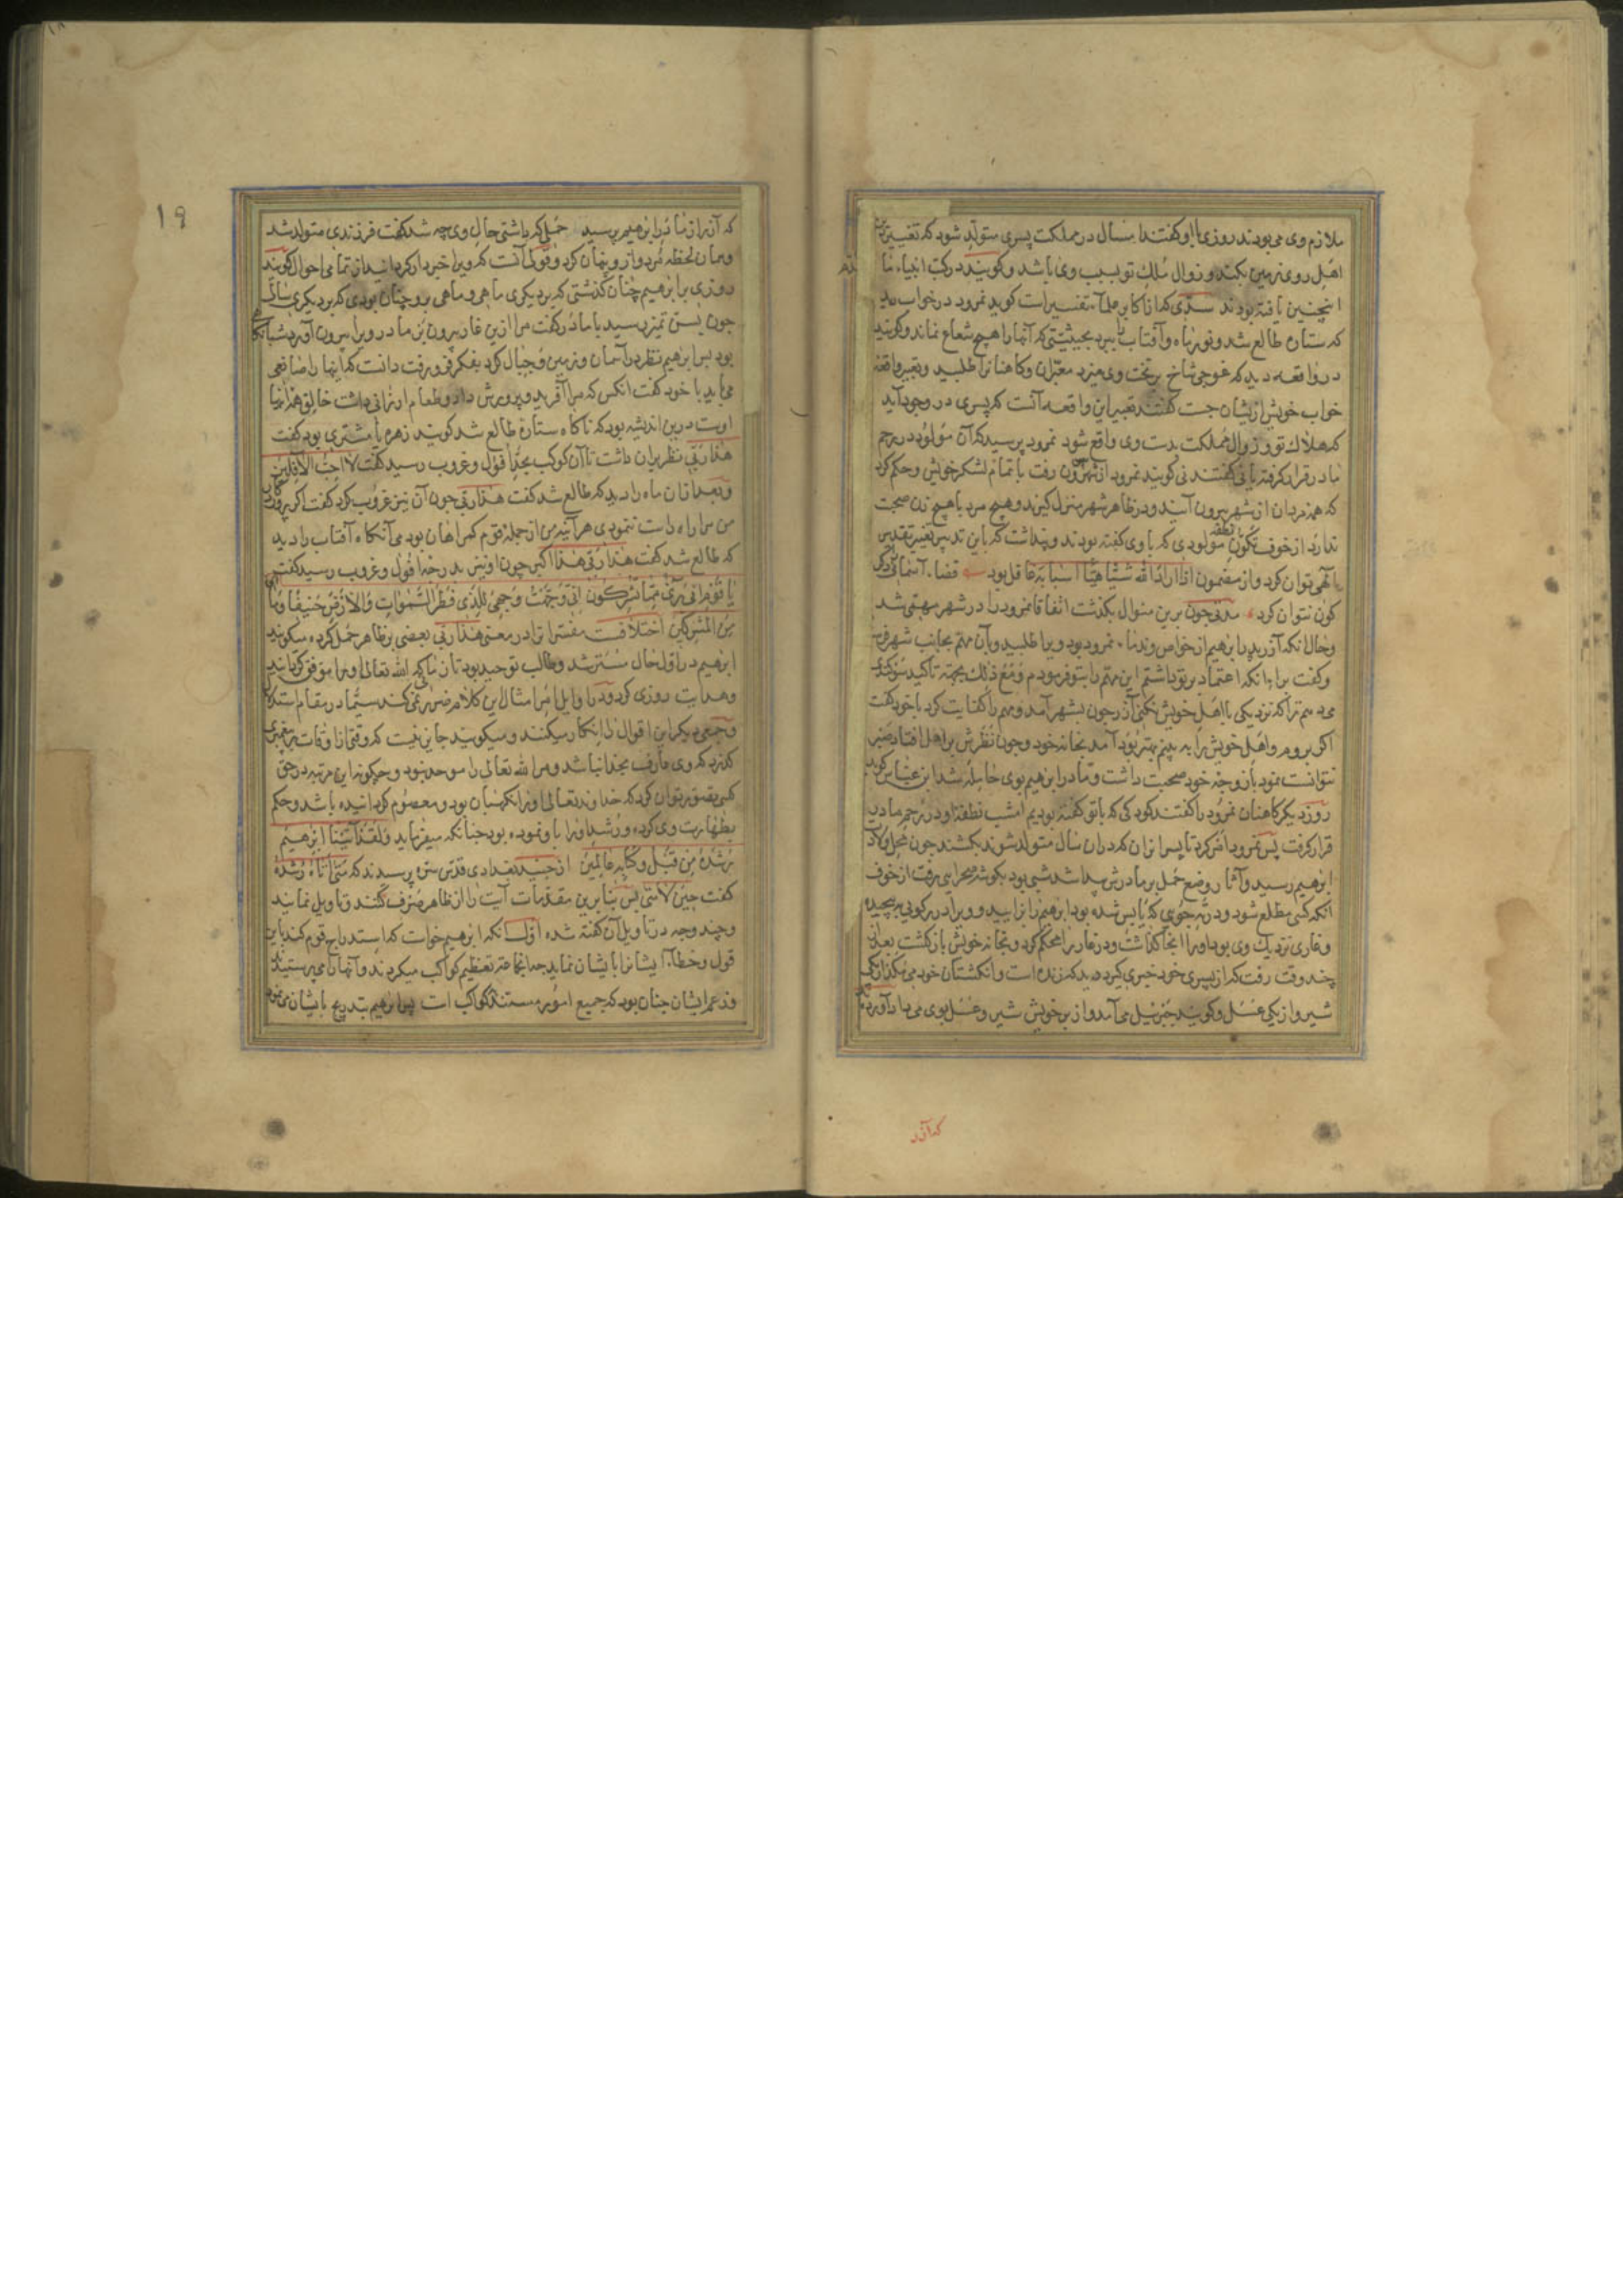 ملازم وی می بودند روزی با او گفتند امسال در مملکت پسری متولد شود که تغییر دین
اهل روی زمین بکند و زوال ملک تو بسبب وی باشد و گویند در کتب انبیاء ما
اینچنین یافته بودند سدّی که از اکابر علماء تفسیرست گوید نمرود در خواب دید
که ستاره طالع شد و نور ماه و آفتاب را ببرد بحیثیتی که آنها را هیچ شعاع نماند و گویند
در واقعه دید که غوجی شاخ بر تخت وی میزد معبّران و کاهنانرا طلبید و تعبیر واقعه
خواب خویش ازیشان جست گفتند تعبیر این واقعه آنست که پسری در وجود آید
که هلاک تو و زوال مملکت بدست وی واقع شود نمرود پرسید که آن مولود در رحم
مادر قرار گرفته یا نی گفتند نی گویند نمرود از شهر بیرون رفت با تمام لشکر خویش و حکم کرد
که همه مردان از شهر بیرون آیند و در ظاهر شهر منزل گیرند و هیچ مرد با هیچ زن صحبت
ندارد از خوف تکوّن نطفه مولودی که با وی گفته بودند و پنداشت که باین تدبیر تغییر تقدیر
الهی توان کرد و از مضمون اذا اراد الله شیئا هیّأ اسبابه غافل بود قضاء آسمانی دگر
گون نتوان کرد مدتی چون برین منوال بگذشت اتفاقا نمرود را در شهر مهمی شد
و حال آنکه آزر پدر ابرهیم از خواص و ندماء نمرود بود ویرا طلبید و بآن مهم بجانب شهر فرستاد
و گفت برای آنکه اعتماد بر تو داشتم این مهم را بتو فرمودم و مع ذلک بجهة تاکید سوگند
می دهم ترا که نزدیکی با اهل خویش نکنی آزر چون بشهر آمد و مهم را کفایت کرد با خود گفت
اگر بروم و اهل خویش را به بینم بهتر بود آمد بخانه خود و چون نظرش بر اهل افتاد صبر
نتوانست نمود با زوجه خود صحبت داشت و مادر ابرهیم بوی حامله شد ابن عباس گوید
روز دیگر کاهنان نمرود را گفتند کودکی که با تو گفته بودیم امشب نطفه او در رحم مادر
قرار گرفت پس نمرود امر کرد تا پسرانرا که در آن سال متولد شوند بکشند چون محل ولادت
ابرهیم رسید و آثار وضع حمل بر مادرش پیدا شد شبی بود بگوشه صحرایی رفت از خوف
آنکه کسی مطلع شود و در ته جویی که یابس شده بود ابرهیم را زایید و ویرا در کوبی پیچیده
و غاری نزدیک وی بود او را آنجا گذاشت و در غار را محکم کرد و بخانه خویش بازگشت بعد از
چند وقت رفت که از پسری خود خبری گیرد دید که زنده است و انگشتان خود می مکد از یکی
شیر و از یکی عسل و گویند جبرئیل می آمد و از بر خویش شیر و عسل بوی می داد آورده
که آزر
19
که آزر از مادر ابرهیم پرسید حملی که داشتی حال وی چه شد گفت فرزندی متولد شد
و همان لحظه مرد و از و پنهان کرد و قولی آنست که ویرا خبردار گردانید از تمامی احوال گویند
روزی بر ابرهیم چنان گذشتی که بر دیگری ماهی و ماهی برو چنان بودی که بر دیگری سالی
چون بسن تمیز رسید با مادر گفت مرا ازین غار بیرون بر مادر ویرا بیرون آورد شبانگاه
بود پس ابرهیم نظر در آسمان و زمین و جبال کرد بفکر فرو رفت دانست که اینها را صانعی
می باید با خود گفت آنکس که مرا آفرید و پرورش داد و طعام ارزانی داشت خالق هذا اینها
اوست درین اندیشه بود که ناگاه ستاره طالع شد گویند زهره یا مشتری بود گفت
هذا ربّی نظر بران داشت تا آن کوکب بحدّ افول و غروب رسید گفت لا احبّ الآفلین
و بعد از آن ماه را دید که طالع شد گفت هذا ربّی چون آن نیز غروب کرد گفت اگر پروردگار
من مرا راه راست ننمودی هر آینه من از جمله قوم گمراهان بودمی آنگاه آفتاب را دید
که طالع شد گفت هذا ربّی هذا اکبر چون او نیز بدرجه افول و غروب رسید گفت
یا قوم انّی بریء ممّا تشرکون انّی وجّهت وجهی للذی فطر السّموات والارض حنیفا وما
من المشرکین اختلافست مفسّرانرا در معنی هذا ربّی بعضی بر ظاهر حمل کرده میگویند
ابرهیم در اوّل حال مسترشد و طالب توحید بود تا زمانی که الله تعالی او را موفق گردانید
و هدایت روزی کرد و در اوایل امر امثال این کلام ضرر نمی کند سیّما در مقام استدلال
و جمعی دیگر این اقوال را انکار میکنند و میگویند جایز نیست که وقتی از اوقات بر پیغمبری
گذرد که وی عارف بخدا نباشد و مر الله تعالی را موحد نبود و چگونه این مرتبه در حق
کسی تصور توان کرد که خداوند تعالی او را نگهبان بود و معصوم گردانیده باشد و حکم
بطهارت وی کرده و رشد او را باو نموده بود چنانکه میفرماید ولقد آتینا ابرهیم
رشده من قبل وکنّا به عالمین از جنید بغدادی قدّس سرّه پرسیدند که متی آتاه رشده
گفت حین لا متی پس بنابرین مقدّمات آیت را از ظاهر صرف کنند و تاویل نمایند
و چند وجه در تاویل آن گفته شده اوّل آنکه ابرهیم خواست که استدراج قوم کند باین
قول و خطاء ایشانرا بایشان نماید چه آنجماعت تعظیم کواکب میکردند و آنها را می پرستیدند
و زعم ایشان چنان بود که جمیع امور مستند بکواکب است پس ابرهیم بتدریج بایشان نمود